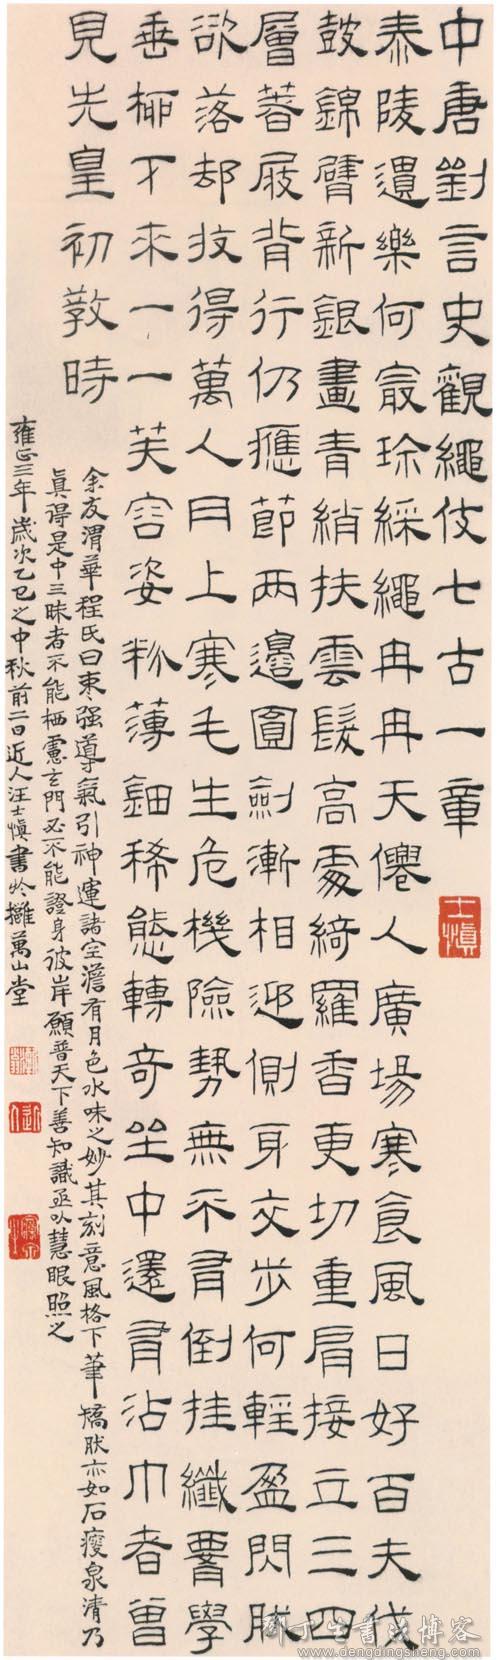 中唐劉言史觀繩伎七古一章
士慎
泰陵遺樂何最珍綵繩冉冉天僊人廣場寒食風日好百夫伐
鼓錦臂新銀畫青綃扶雲髮高處綺羅香更切重肩接立三四
層著屐背行仍應節兩邊圓劍漸相迎側身交步何輕盈閃肰
欲落却收得萬人肉上寒毛生危機險勢無不有倒挂纖腰學
垂桺下來一一芙容姿粉薄鈿稀態轉奇坐中還有沾巾者曾
見先皇初敎時
余友渭華程氏曰棗强導氣引神運諸空澹有月色水味之妙其刻意風格下筆矯肰亦如石瘦泉清乃
真得是中三昧者不能栖慮玄門必不能證身彼岸願普天下善知識亟以慧眼照之
雍正三年歲次乙巳之中秋前二日近人汪士慎書於攤萬山堂
鄧丁生書法博客
www.dengdingsheng.com